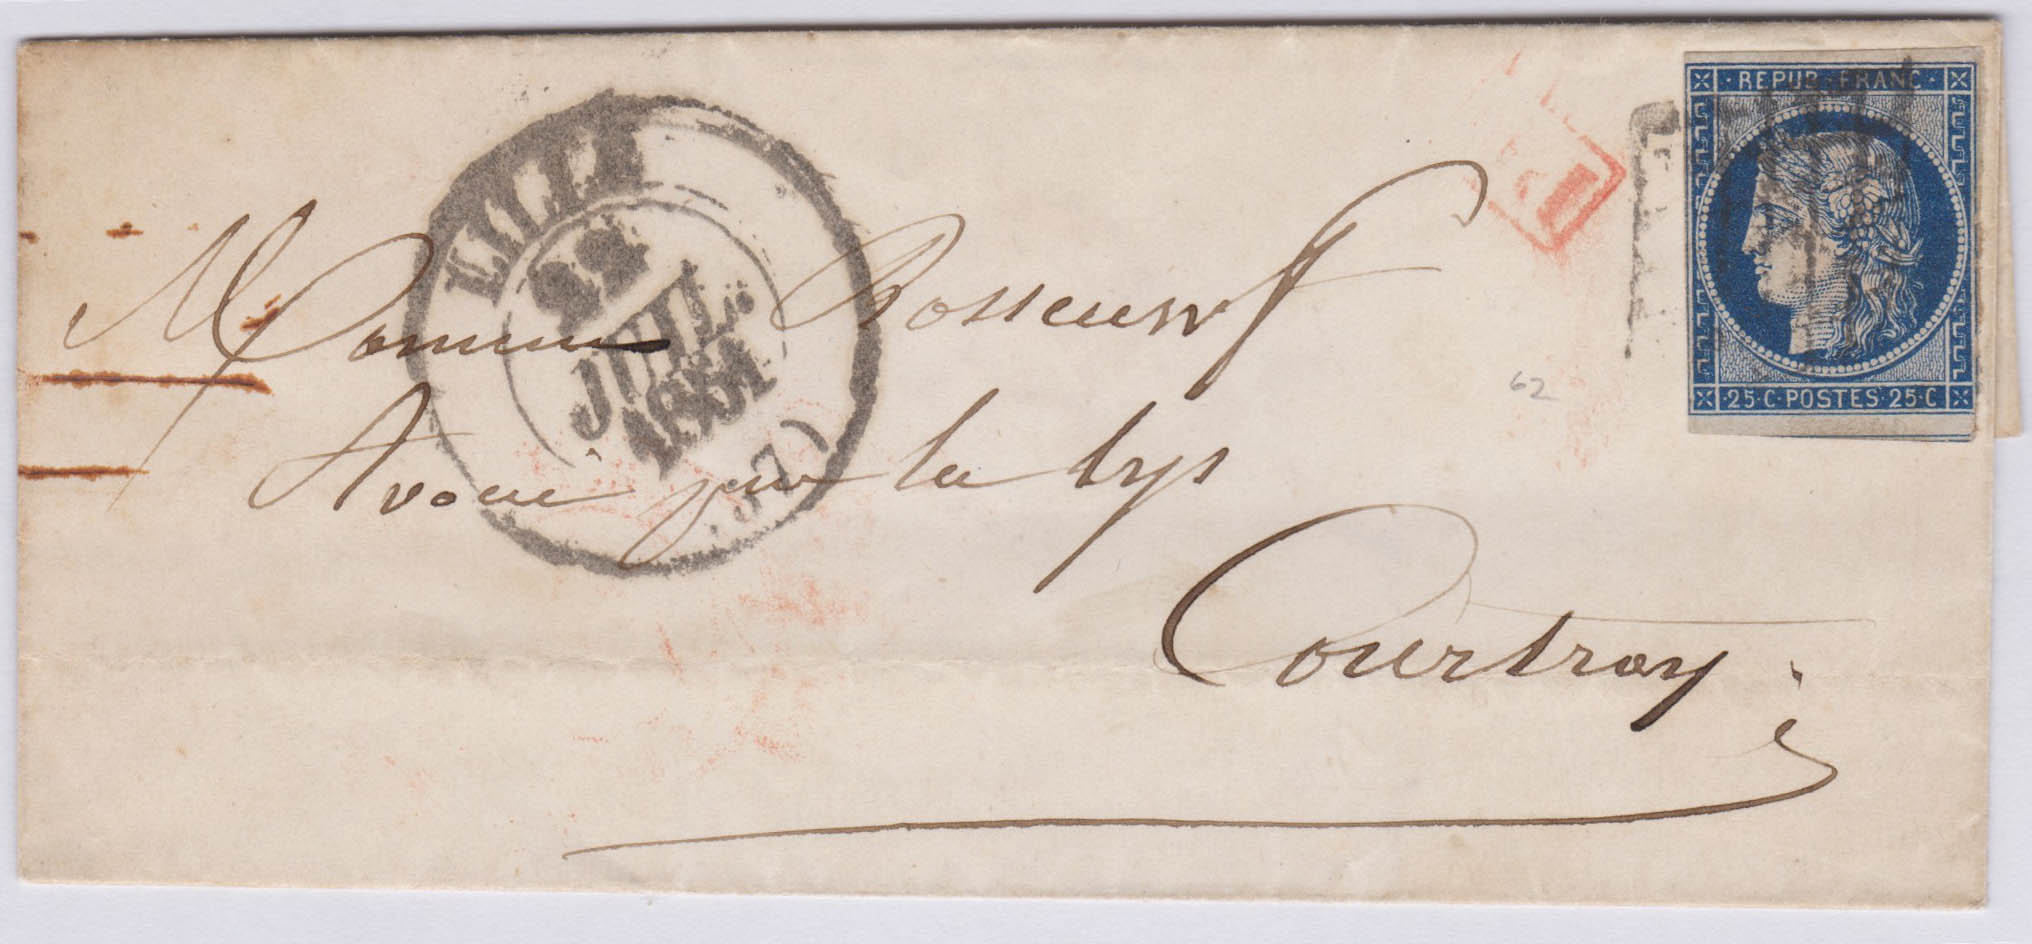 REPUB. FRANC
LILLE
22
JUIL.
1851
(57)
P.D.
Monsieur
Avoué sur la lys
Courtray
62
25·C·POSTES·25·C